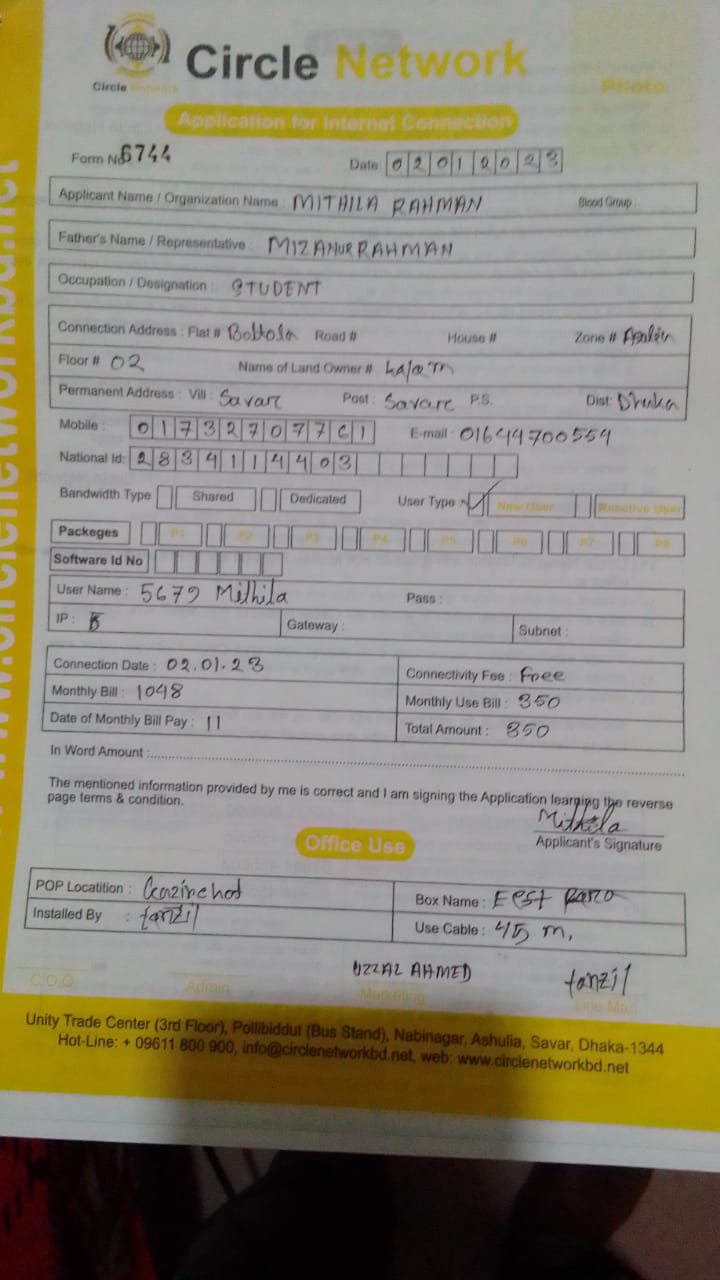 Circle Network
Circle Network
Photo
Application for Internet Connection
Form No 6744
Date: 02012023
Applicant Name / Organization Name : MITHILA RAHMAN Blood Group :
Father's Name / Representative : MIZANUR RAHMAN
Occupation / Designation : STUDENT
Connection Address : Flat # Road # House # Zone #
Floor # 02 Name of Land Owner #
Permanent Address : Vill : Savar Post : Savar P.S. Dist: Dhaka
Mobile : 01732707761 E-mail : 01644700554
National Id: 2834114403
Bandwidth Type Shared Dedicated User Type : New User Reactive User
Packeges P1 P2 P3 P4 P5 P6 P7 P8
Software Id No
User Name : 5679 Mithila Pass :
IP : Gateway : Subnet :
Connection Date : 02.01.23 Connectivity Fee : Free
Monthly Bill : 1048 Monthly Use Bill : 350
Date of Monthly Bill Pay : 11 Total Amount : 350
In Word Amount :
The mentioned information provided by me is correct and I am signing the Application learning the reverse
page terms & condition.
Mithila
Applicant's Signature
Office Use
POP Locatition : Box Name :
Installed By : tanzil Use Cable : 45 m,
UZZAL AHMED tanzil
C.O.O Admin Marketing Line Man
Unity Trade Center (3rd Floor), Pollibiddut (Bus Stand), Nabinagar, Ashulia, Savar, Dhaka-1344
Hot-Line: + 09611 800 900, info@circlenetworkbd.net, web: www.circlenetworkbd.net
www.circlenetworkbd.net